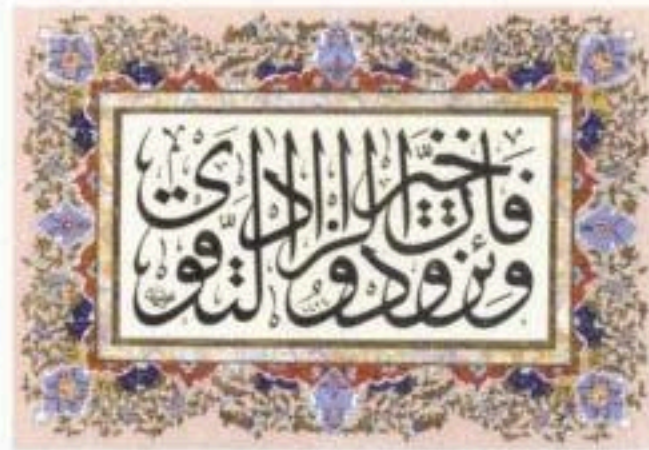 وتزودوا فإن خير الزاد التقوى